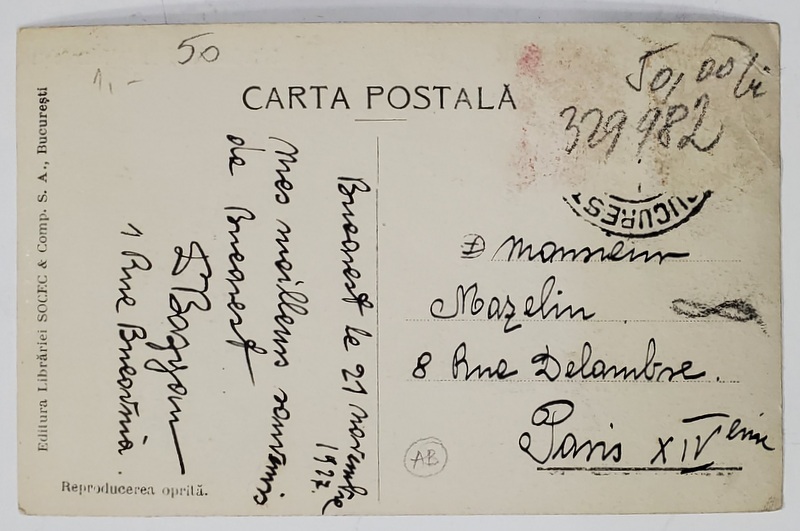 50
1,-
50,00 lei
329982
CARTA POSTALĂ
BUCUREST
Editura Librăriei SOCEC & Comp. S. A., București
Reproducerea oprită.
Bucarest le 21 novembre
1927.
Mes meilleurs souvenirs
de Bucarest
1 Rue Bucovina.
Monsieur
Mazelin
8 Rue Delambre.
Paris XIV ème
AB